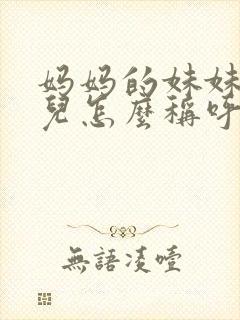 妈妈的妹妹
兒怎麼稱呼
無語凌噎